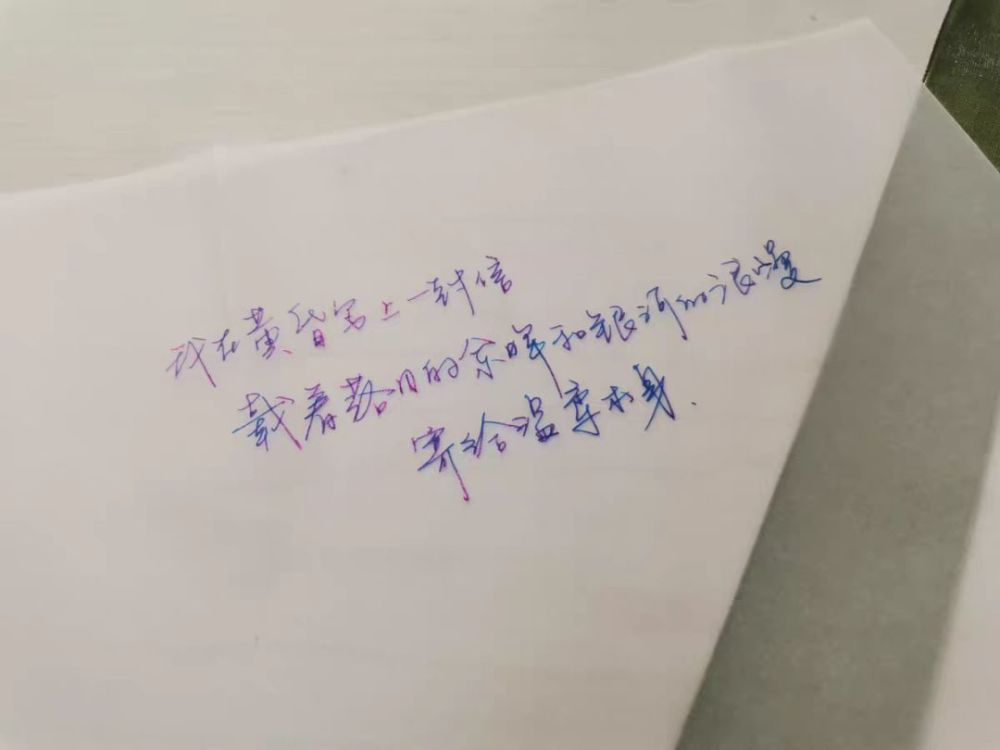 我在黄昏写上一封信
载着落日的余晖和银河的浪漫
寄给温享本身.